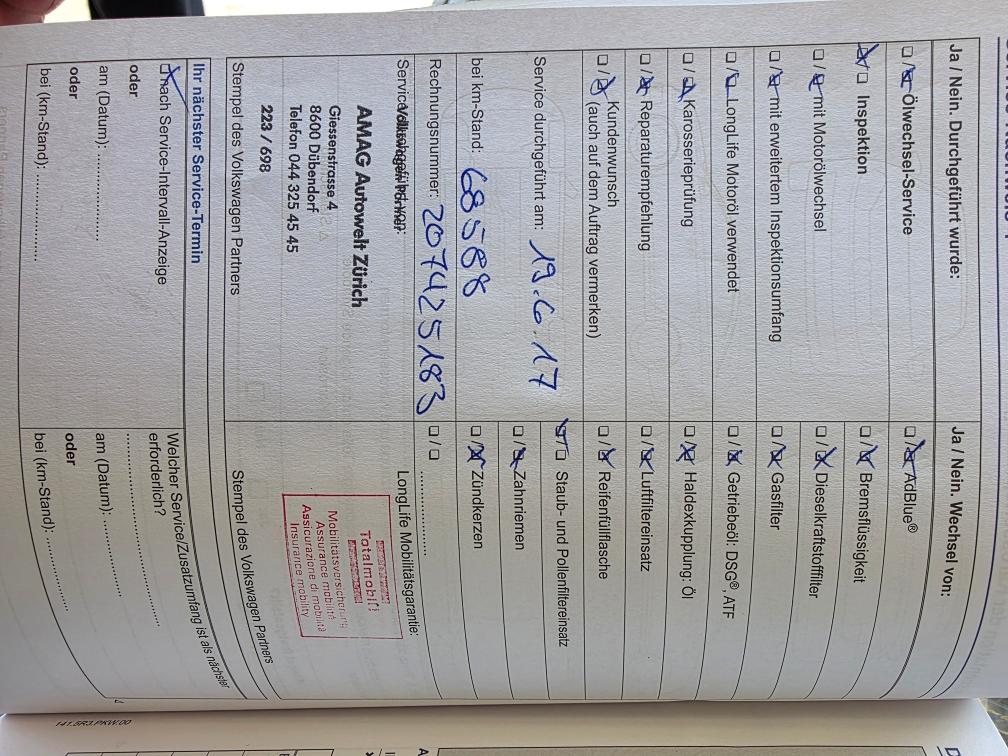 Ja / Nein. Durchgeführt wurde:
☐ / ☒ Ölwechsel-Service
☒ / ☐ Inspektion
☐ / ☒ mit Motorölwechsel
☐ / ☒ mit erweitertem Inspektionsumfang
☐ / ☒ LongLife Motoröl verwendet
☐ / ☒ Karosserieprüfung
☐ / ☒ Reparaturempfehlung
☐ / ☒ Kundenwunsch
(auch auf dem Auftrag vermerken)
Service durchgeführt am: 19.6.17
bei km-Stand: 68588
Rechnungsnummer: 207425183
Service
AMAG Autowelt Zürich
Giessenstrasse 4
8600 Dübendorf
Telefon 044 325 45 45
223 / 698
Stempel des Volkswagen Partners
Ja / Nein. Wechsel von:
☐ / ☒ AdBlue®
☐ / ☒ Bremsflüssigkeit
☐ / ☒ Dieselkraftstofffilter
☐ / ☒ Gasfilter
☐ / ☒ Getriebeöl: DSG®, ATF
☐ / ☒ Haldexkupplung: Öl
☐ / ☒ Luftfiltereinsatz
☐ / ☒ Reifenfüllflasche
☒ / ☐ Staub- und Pollenfiltereinsatz
☐ / ☒ Zahnriemen
☐ / ☒ Zündkerzen
☐ / ☐ ....................
LongLife Mobilitätsgarantie:
Totalmobil!
Mobilitätsversicherung
Assurance mobilité
Assicurazione di mobilità
Insurance mobility
Stempel des Volkswagen Partners
Ihr nächster Service-Termin
☒ nach Service-Intervall-Anzeige
oder
am (Datum): ....................
oder
bei (km-Stand): ....................
Welcher Service/Zusatzumfang ist als nächster
erforderlich?
........................................
am (Datum): ....................
oder
bei (km-Stand): ....................
141.5R3.PKW.00